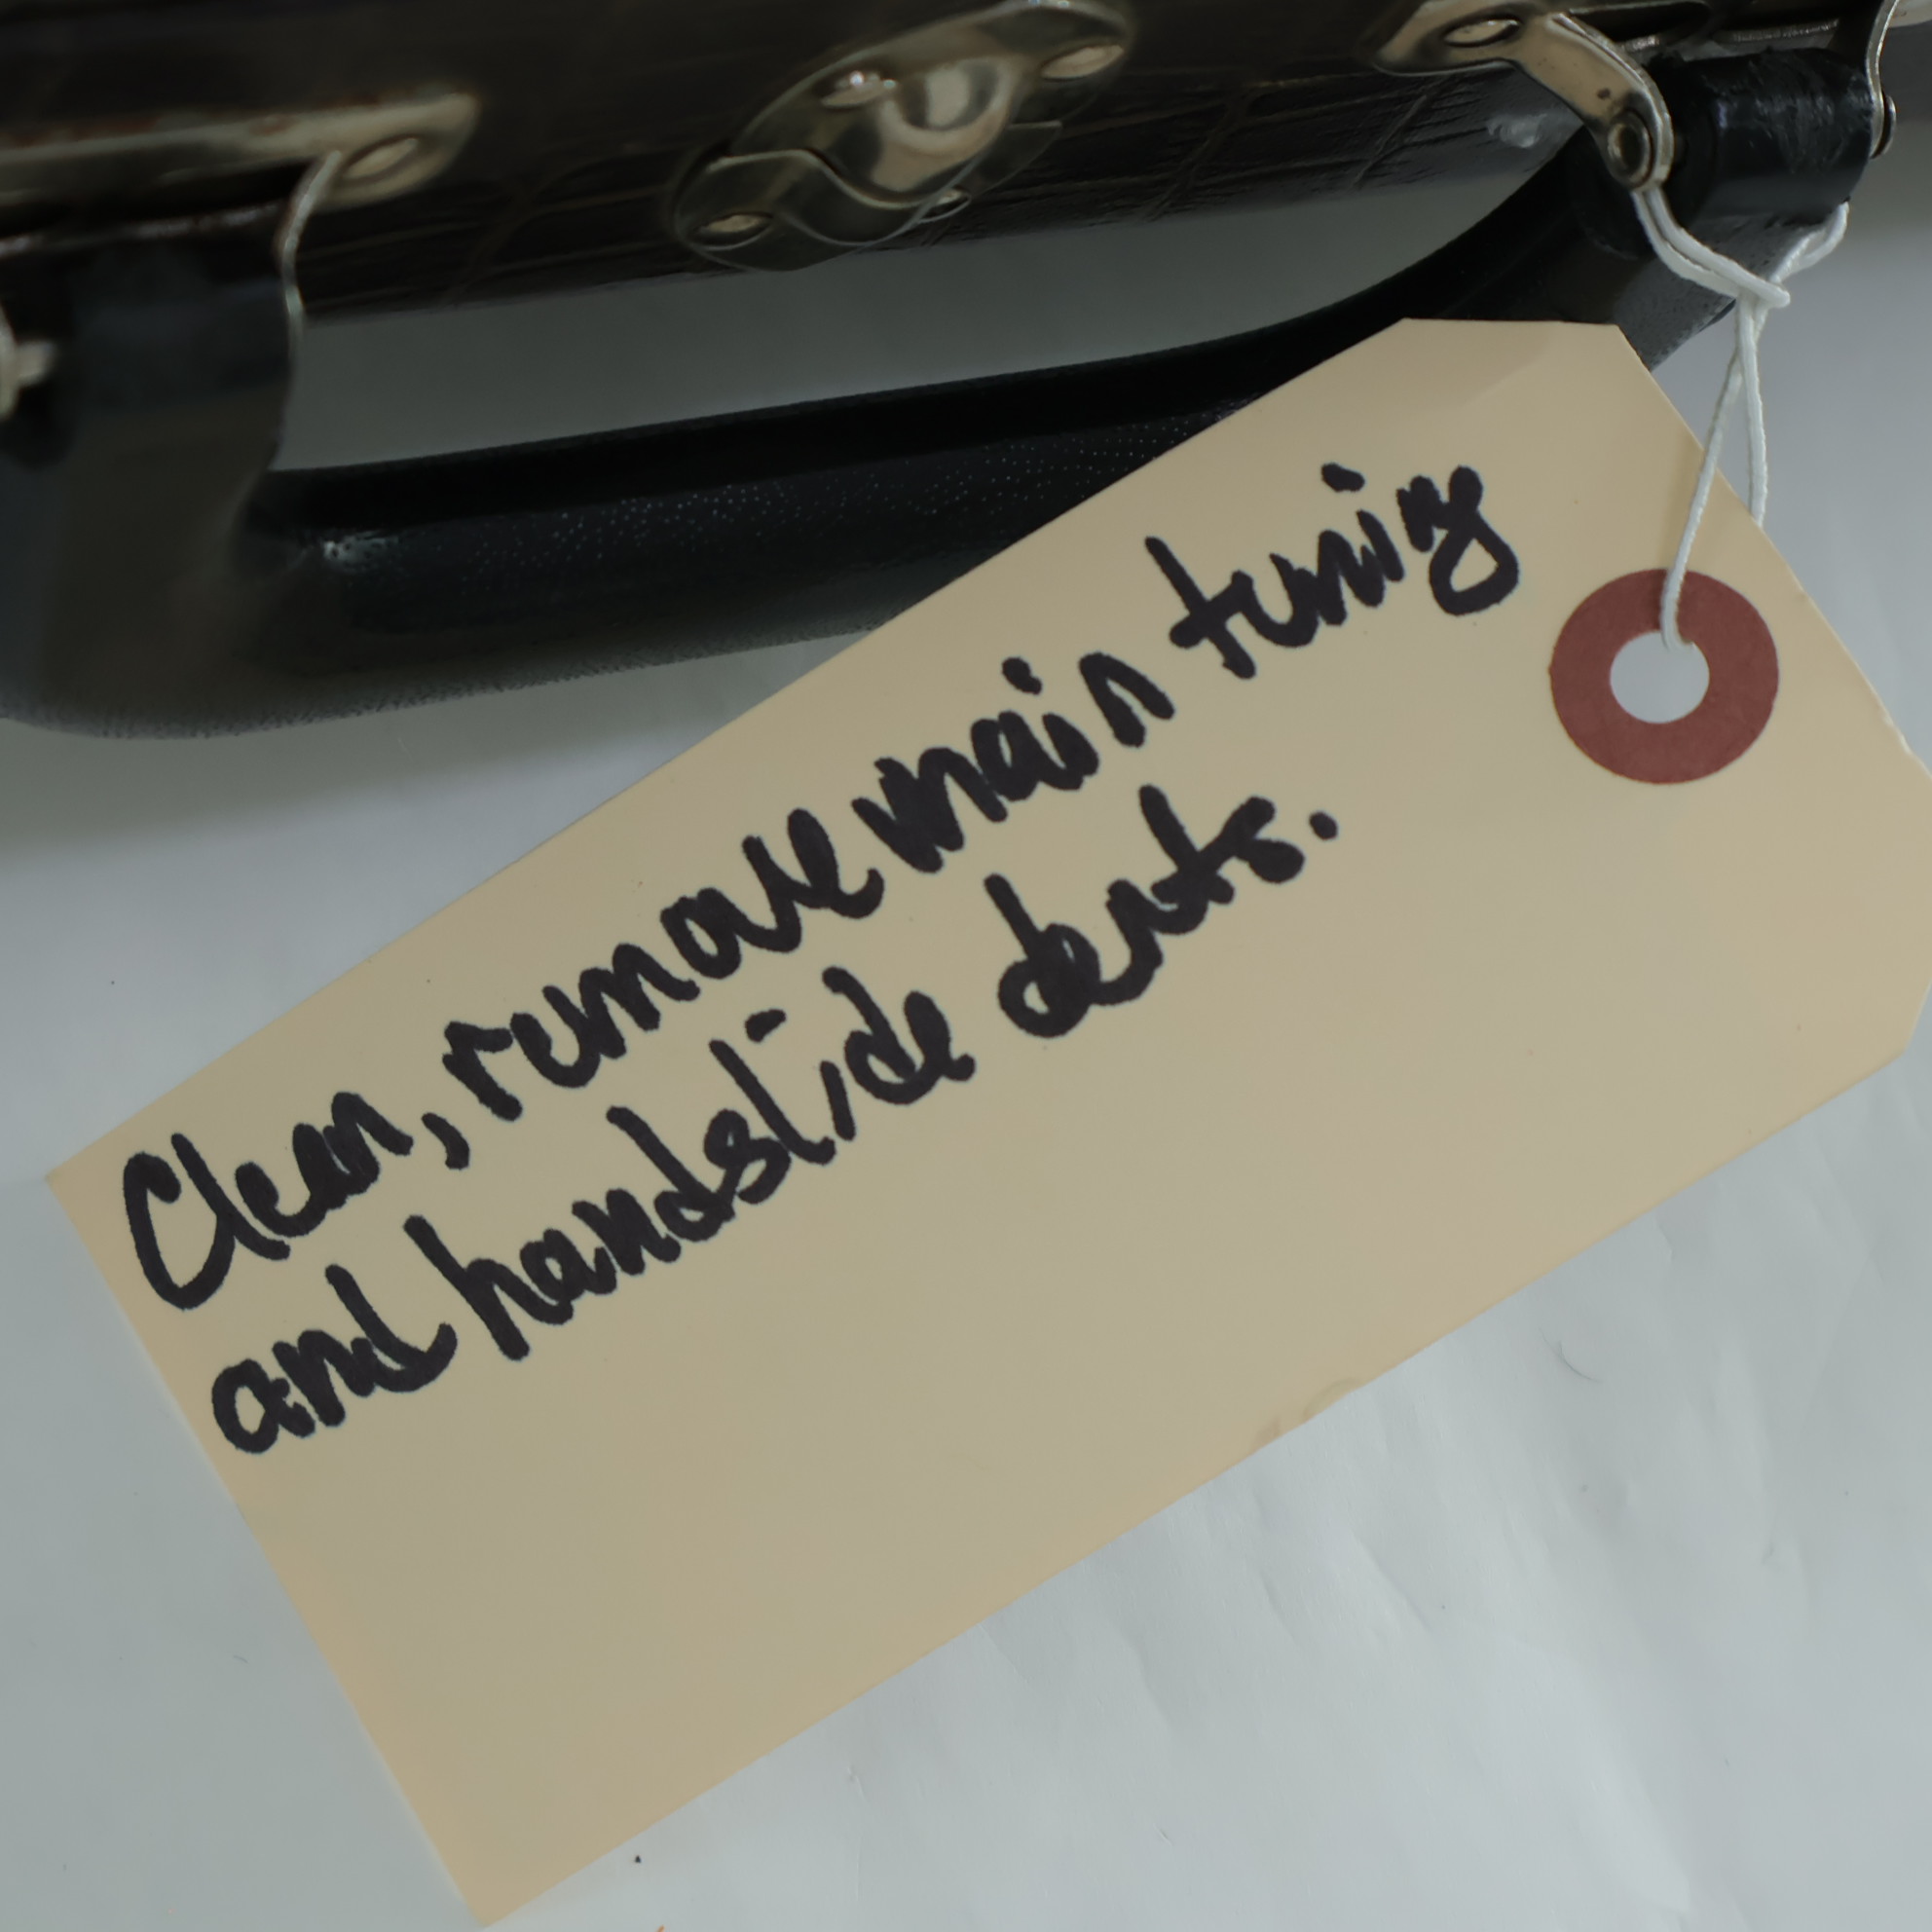 Clean, remove main tuning
and handslide dents.